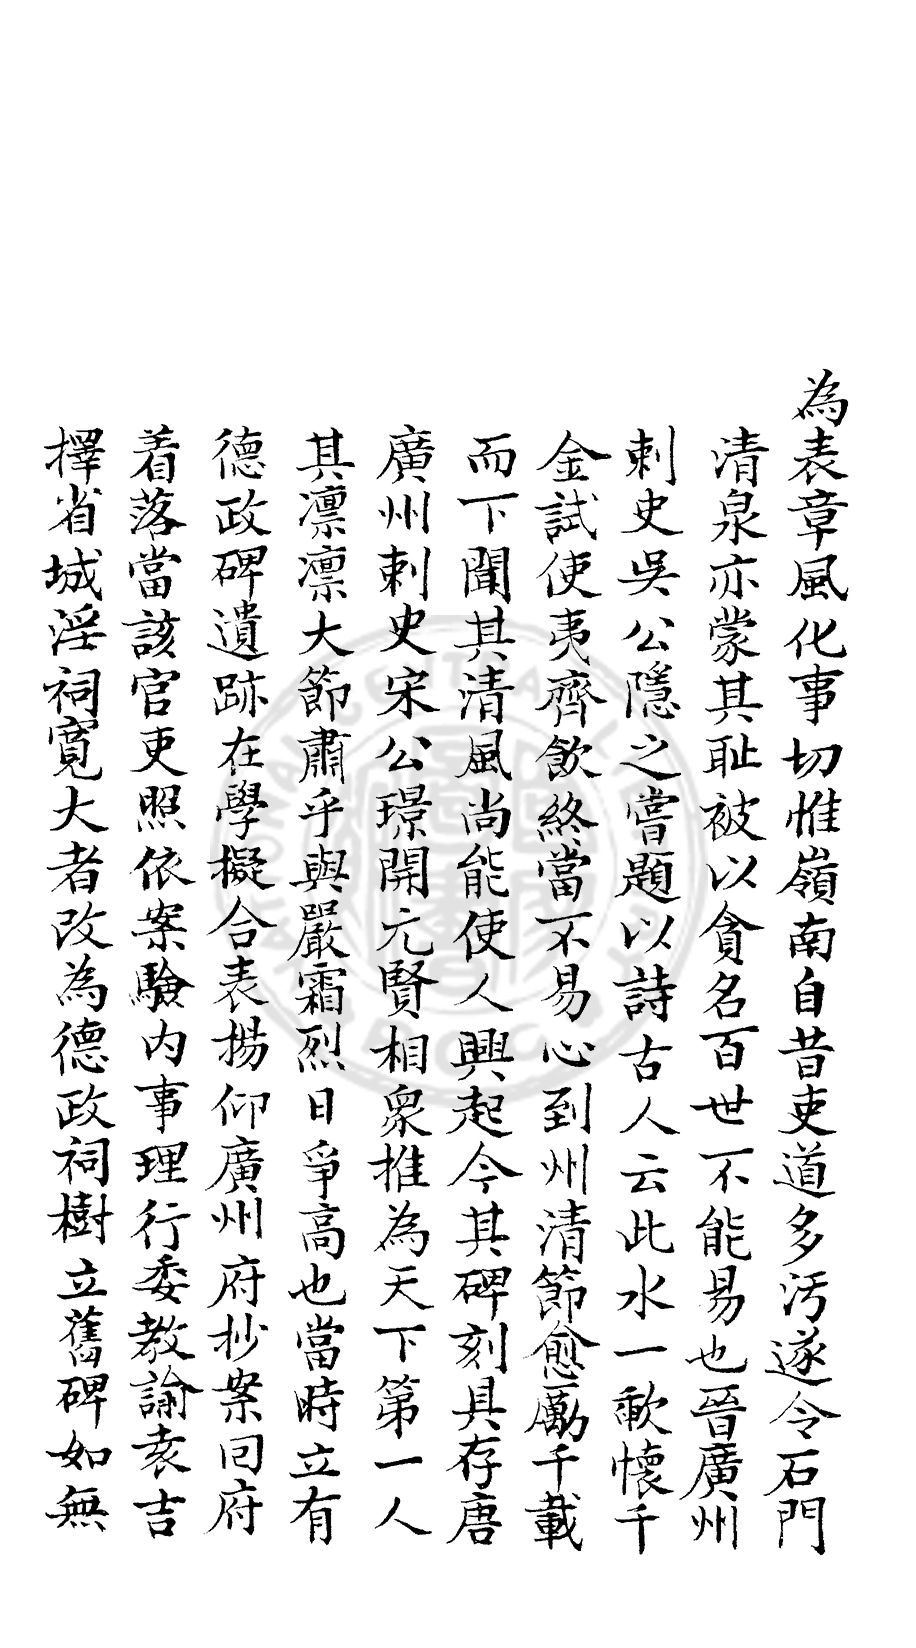 為表章風化事切惟嶺南自昔吏道多汚遂令石門
清泉亦蒙其耻被以貪名百世不能易也晉廣州
刺史吳公隱之嘗題以詩古人云此水一歃懷千
金試使夷齊飲終當不易心到州清節愈勵千載
而下聞其清風尚能使人興起今其碑刻具存唐
廣州刺史宋公璟開元賢相衆推為天下第一人
其凛凛大節肅乎與嚴霜烈日爭高也當時立有
德政碑遺跡在學擬合表揚仰廣州府抄案回府
着落當該官吏照依案驗内事理行委教諭袁吉
擇省城淫祠寛大者改為德政祠樹立舊碑如無